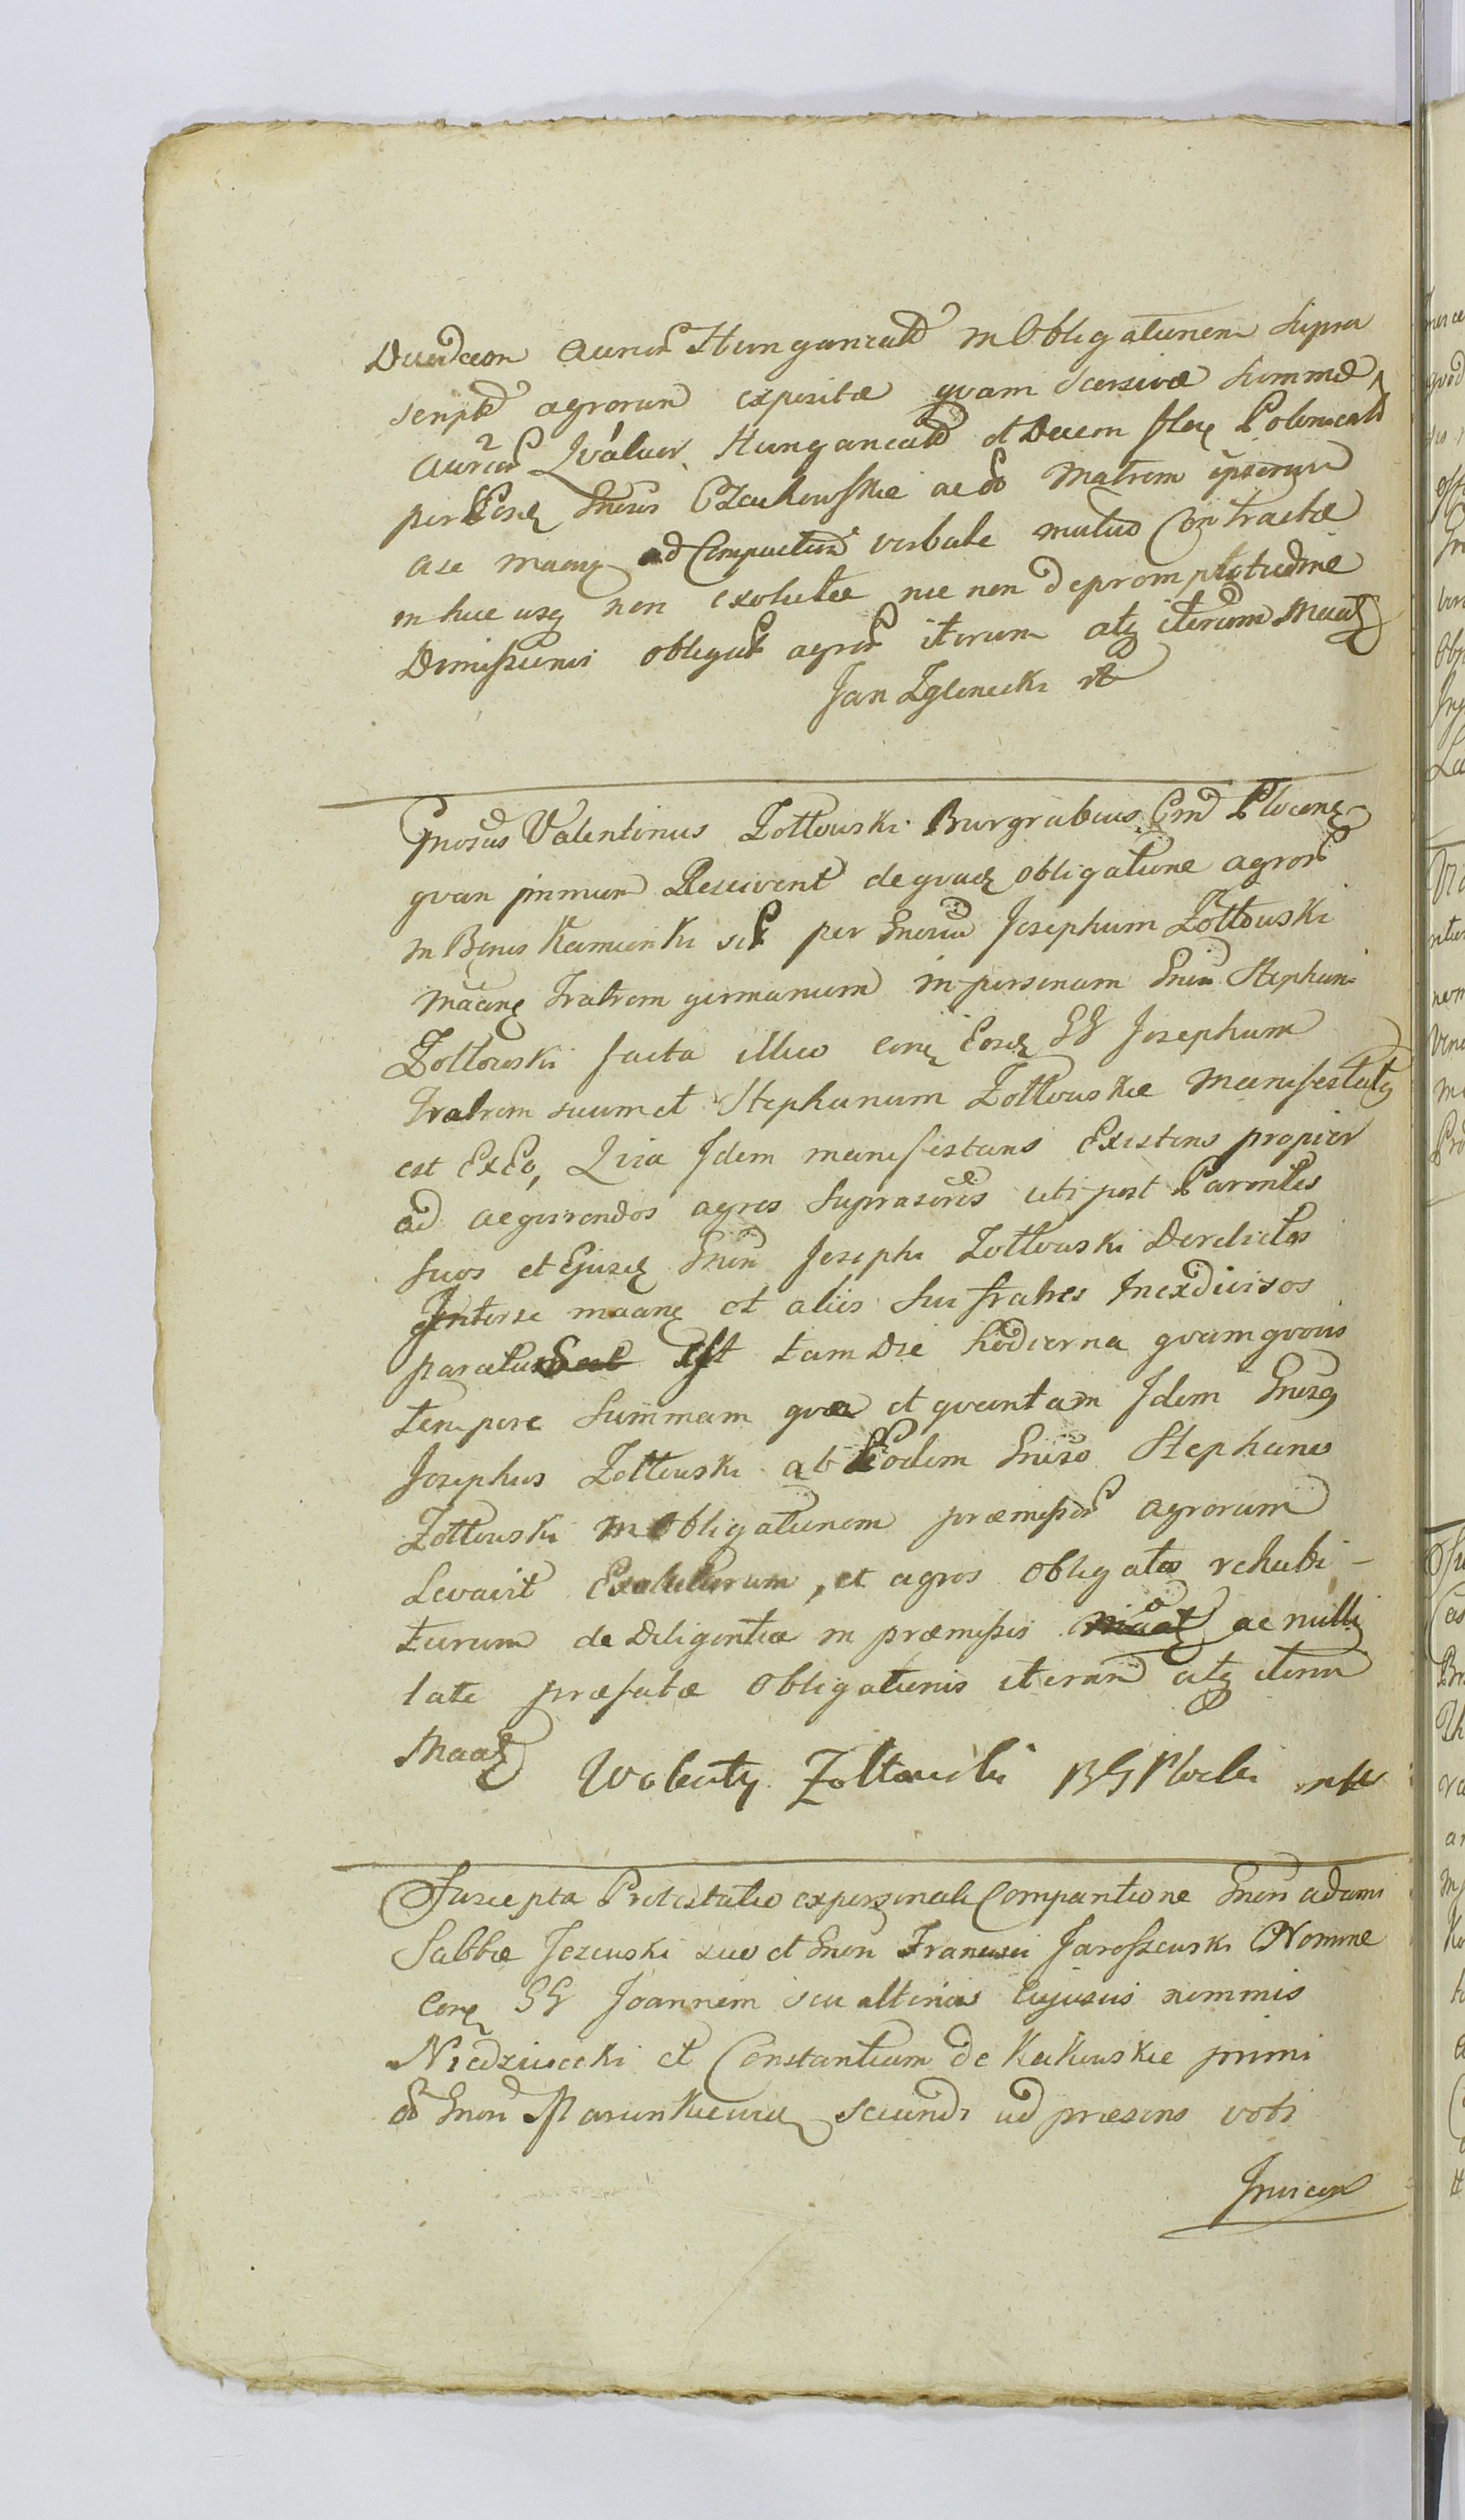 Duodecem Auror Hungarical in Obligationem supra
script agrorum expositæ quam seorsivæ summæ
Auror Qvatuor Hungarical et Decem flor Polonical
per Eosd Gnosos Czachowskie ac Matrem ipsorum
a se maan ad Compactum verbale mutuo Contractæ
in huc usq non exolutæ nec non de promptitudine
Dimissionis obligat agror iterum atq iterum Maat
Jan Zglinicki
Gnosus Valentinus Zołtowski Burgrabius Cas Plocens
quam primum Rescivent de quad obligatione agror
in Bonis Kamionki per Gnosum Josephum Zołtowski
maan Fratrem germanum in personam Gnosi Stephani
Zołtowski facta illico con Eosd GG Josephum
Fratrem suum et Stephanum Zołtowskie Manifestatq
est Ex Eo, Quia Idem manifestans Existens propior
ad acquirendos agros suprascros uti post Parentes
suos et Ejusd Gnosi Josephi Zołtowski Derelictos
Inter se maan et aliis sui fratres Inexdivisos
paratus Est tam Die hodierna quam quovis
tempore summam qvam et qvantam Idem Gnosq
Josephus Zołtowski ab Eodem Gnoso Stephano
Zołtowski in Obligationem præmissor agrorum
Levavit Exoluturum, et agros obligatos rehabi-
turum de Diligentia in præmissis maat ac nulli
tate præfatæ Obligationis iterum atq iterum
Maat
Walenty Zołtowski BG Płocki mp
Suscepta Protestatio ex personali Comparitione Gnosi Adami
Sabbæ Jezewski suo et Gnosi Francisci Jaroszewski Nomine
con GG Joannem seu alterius cujusvis nominis
Niedzwiecki et Constantiam de Kakowskie primi
Gnosi Marunkiewicz secundi ad præsens voti
Invicem